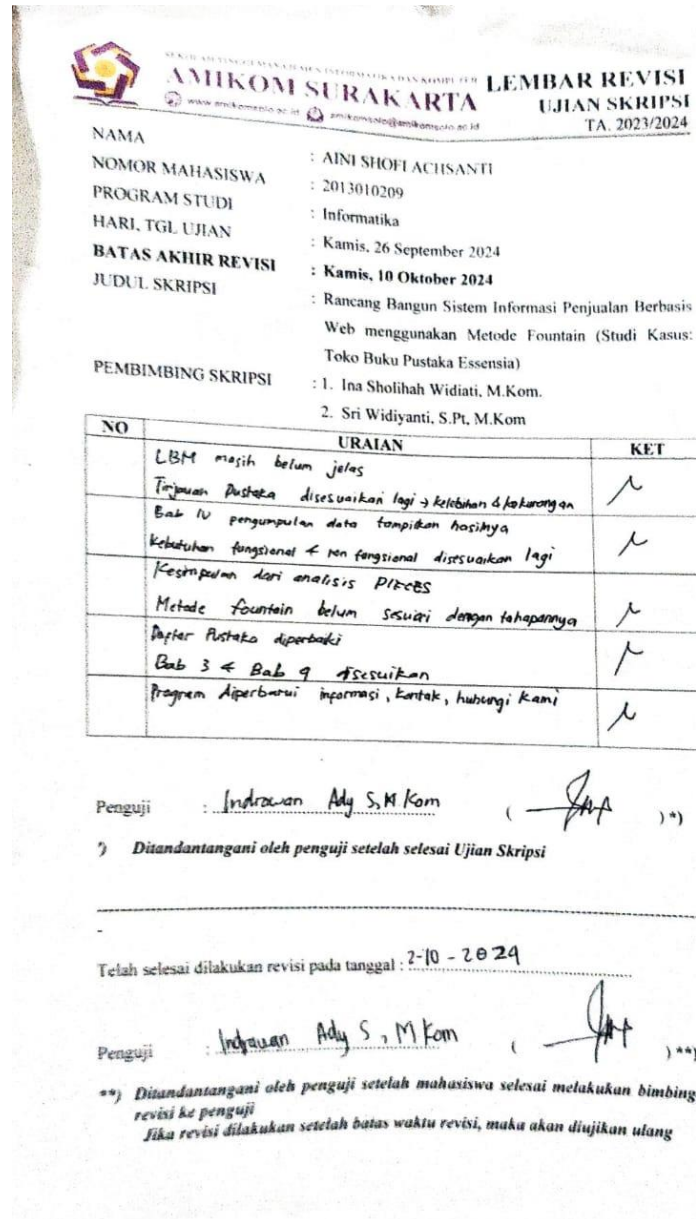 SEKOLAH TINGGI MANAJEMEN INFORMATIKA DAN KOMPUTER
AMIKOM SURAKARTA
www.amikomsolo.ac.id amikomsolo@amikomsolo.ac.id
LEMBAR REVISI
UJIAN SKRIPSI
TA. 2023/2024
NAMA : AINI SHOFI ACHSANTI
NOMOR MAHASISWA : 2013010209
PROGRAM STUDI : Informatika
HARI, TGL UJIAN : Kamis, 26 September 2024
BATAS AKHIR REVISI : Kamis, 10 Oktober 2024
JUDUL SKRIPSI : Rancang Bangun Sistem Informasi Penjualan Berbasis
Web menggunakan Metode Fountain (Studi Kasus:
Toko Buku Pustaka Essensia)
PEMBIMBING SKRIPSI : 1. Ina Sholihah Widiati, M.Kom.
2. Sri Widiyanti, S.Pt, M.Kom
NO URAIAN KET
LBM masih belum jelas
Tinjauan Pustaka disesuaikan lagi → kelebihan & kekurangan
Bab IV pengumpulan data tampilkan hasilnya
Kebutuhan fungsional & non fungsional disesuaikan lagi
Kesimpulan dari analisis PIECES
Metode fountain belum sesuai dengan tahapannya
Daftar Pustaka diperbaiki
Bab 3 & Bab 4 disesuikan
Program diperbarui informasi, kontak, hubungi kami
Penguji : Indrawan Ady S, M.Kom ( ) *)
*) Ditandantangani oleh penguji setelah selesai Ujian Skripsi
-
Telah selesai dilakukan revisi pada tanggal : 2-10-2024
Penguji : Indrawan Ady S, M Kom ( ) **)
**) Ditandantangani oleh penguji setelah mahasiswa selesai melakukan bimbing
revisi ke penguji
Jika revisi dilakukan setelah batas waktu revisi, maka akan diujikan ulang